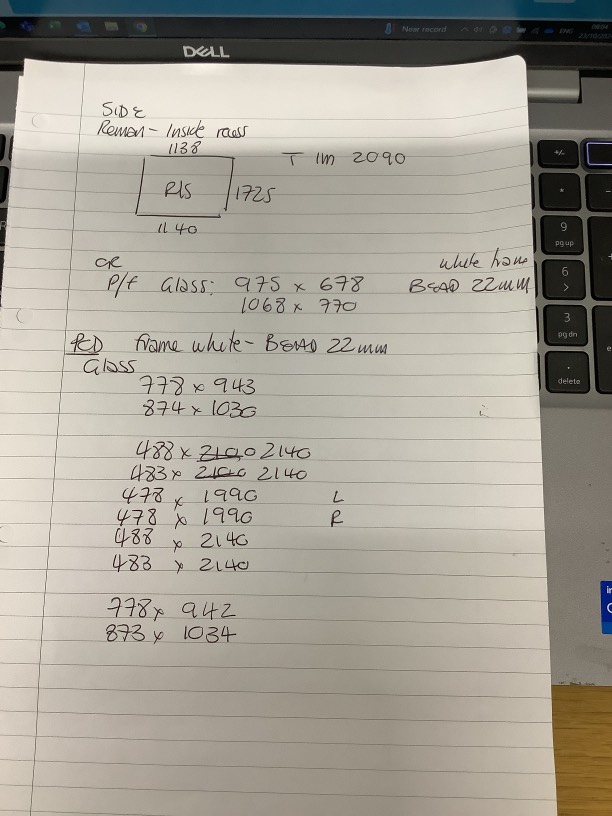 Near record
ENG
DELL
SIDE
Remon - Inside
1138
T 1M 2090
RIS
1725
1140
white frame
P/f Glass: 975 x 678 BEAD 22mm
1068 x 770
frame white - BEAD 22mm
Glass
778 x 943
874 x 1030
488 x 2100 2140
483 x 2100 2140
478 x 1990 L
478 x 1990 R
488 x 2140
483 x 2140
778 x 942
873 x 1034
+/-
*
9
pg up
6
>
3
pg dn
.
delete